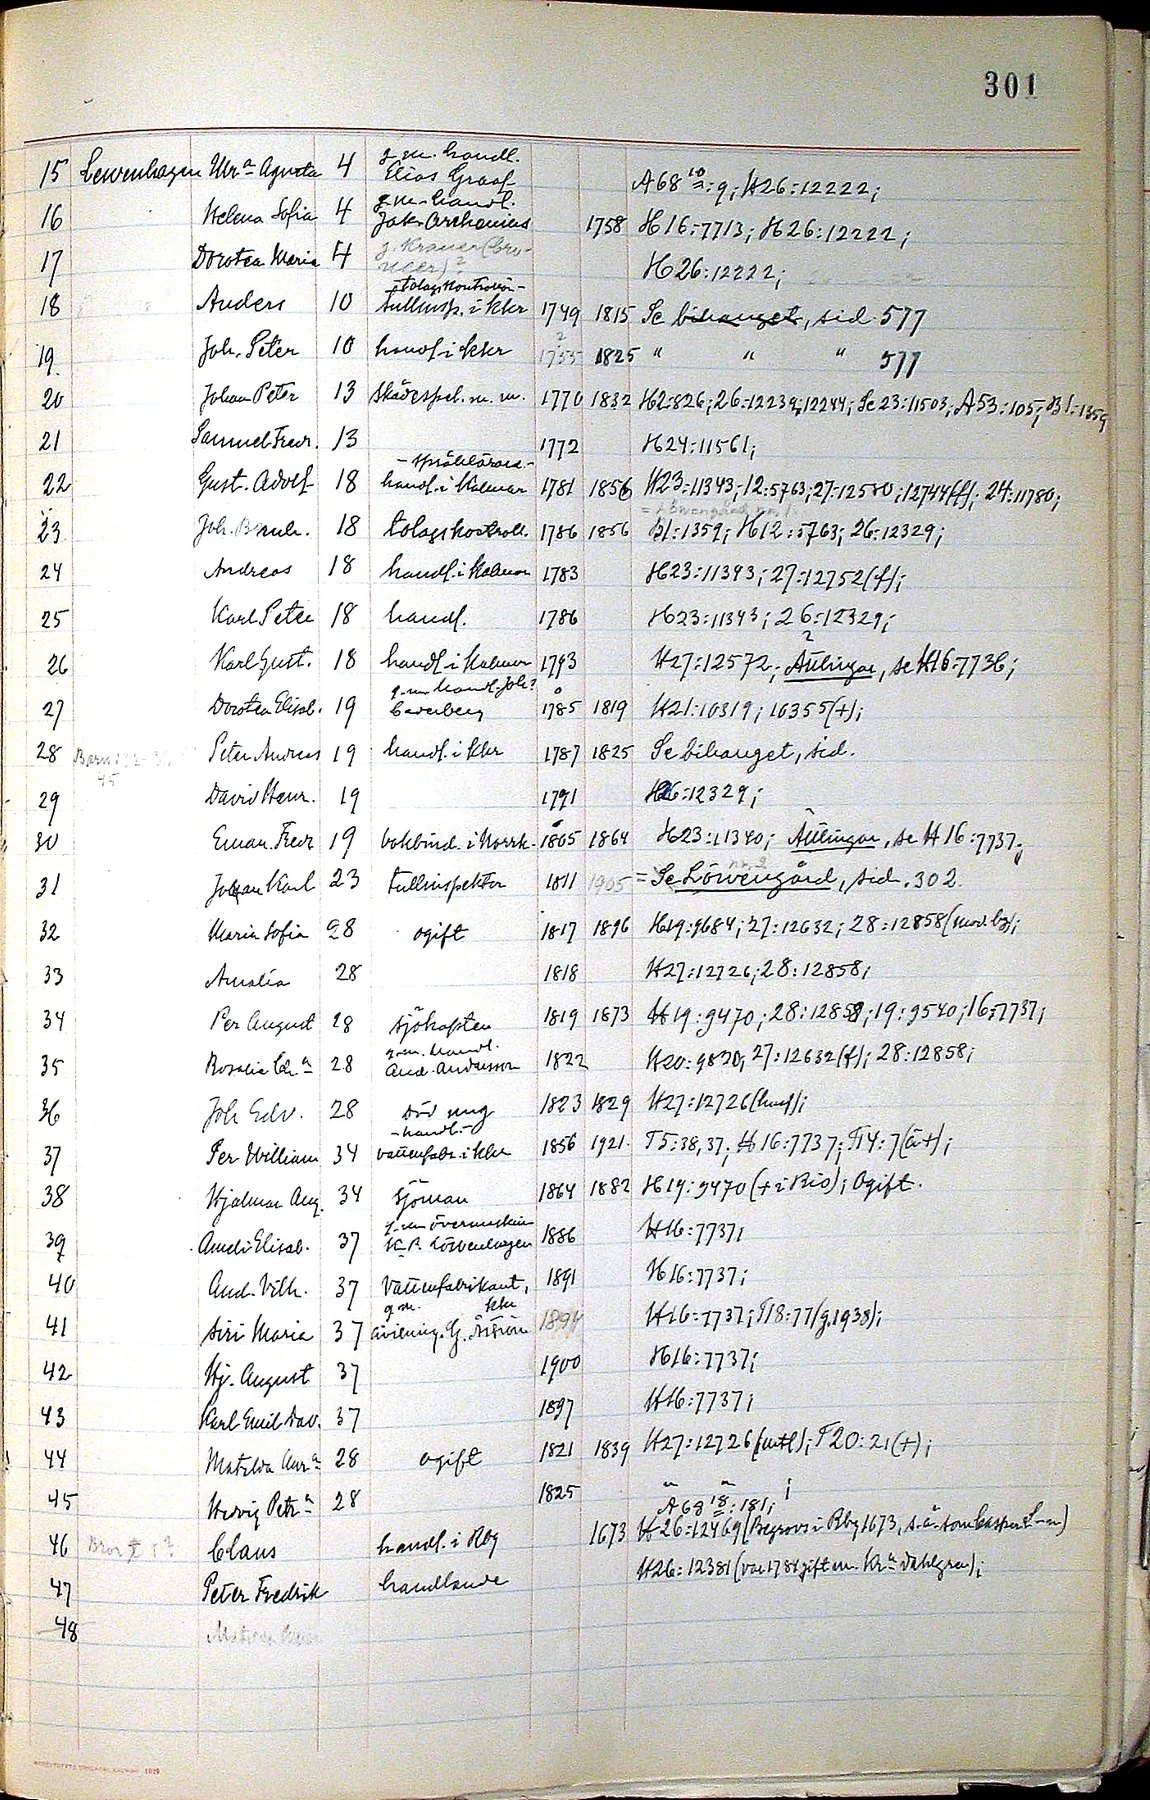 301
15 Lewenhagen Ulr:a Agneta 4 g. m. handl. Elias Graaf A68 10/a: 9; H26:12222;
16 Helena Sofia 4 g. m. handl. Jak. Orchanius 1758 H16:7713; H26:12222;
17 Dorotea Maria 4 H26:12222;
18 Anders 10 -tolagskontrollör- tullinsp. i Kkr 1749 1815 Se bihanget, sid. 577
19. Joh. Peter 10 handl. i Kkr 1755 ? 1825 " " " 577
20 Johan Peter 13 skådespel. m. m. 1770 1832 H2:826; 26:12239, 12244; Se 23:11503; A53:105; B1:1359
21 Samuel Fredr. 13 1772 H24:11561;
22 Gust. Adolf 18 -språklärare- handl. i Kalmar 1781 1856 H23:11343; 12:5763; 27:12580; 12744(f); 24:11780;
23 Joh. 18 tolagskontroll. 1786 1856 B1:1359; H12:5763; 26:12329;
24 Andreas 18 handl. i Kalmar 1783 H23:11343; 27:12752(f);
25 Karl Peter 18 handl. 1786 H23:11343; 26:12329;
26 Karl Gust. 18 handl. i Kalmar 1793 H27:12572; Ättlingar, se H16:7736;
27 Dorotea Elisab. 19 g. m. handl. Joh. Cederberg 1785 1819 H21:10319; 10355(+);
28 Peter Andreas 19 handl. i Kkr 1787 1825 Se bihanget, sid.
29 David Henr. 19 1791 H26:12329;
30 Eman. Fredr 19 bokbind. i Norrk. 1805 1864 H23:11340; Ättlingar, se H16:7737;
31 Johan Karl 23 tullinspektor 1811 1905 = Se Löwengård, sid. 302
32 Maria Sofia 28 ogift 1817 1896 H19:9684; 27:12632; 28:12858
33 Amalia 28 1818 H27:12726; 28:12858;
34 Per August 28 sjökapten 1819 1873 H19:9470; 28:12858; 19:9540; 16:7737;
35 Rosalia Ch:a 28 g. m. handl. And. Andersson 1822 H20:9820; 27:12632(f); 28:12858;
36 Joh. Edv. 28 död ung 1823 1829 H27:12726
37 Per William 34 -handl.- vattenfabr. i Kkr 1856 1921. T5:38, 37; H16:7737; T14:7(ä+);
38 Hjalmar Aug. 34 sjöman 1864 1882 H19:9470 (+ i Rio); Ogift.
39 Elisab. 37 g. m. övermaskin K. R. Löwenhagen 1886 H16:7737;
40 And. Vilh. 37 vattenfabrikant, Kkr 1891 H16:7737;
41 Siri Maria 37 g. m. civiling. G. 1894 H16:7737; T18:77 (g. 1938);
42 Hj. August 37 1900 H16:7737;
43 Karl Emil Dav. 37 1897 H16:7737;
44 Matilda Aur:a 28 ogift 1821 1839 H27:12726; T20:21(+);
45 Hedvig Petr:a 28 1825 " " ;
46 Bror t. 1? Claus handl. i Rby 1673 A69 18: 181; H26:12469 (Begravs i Rby 1673, s. å. som Casper L-n)
47 Peter Fredrik handlande H26:12381 (var 1784 gift m. Kr:a Dahlgren);
48 Matilda